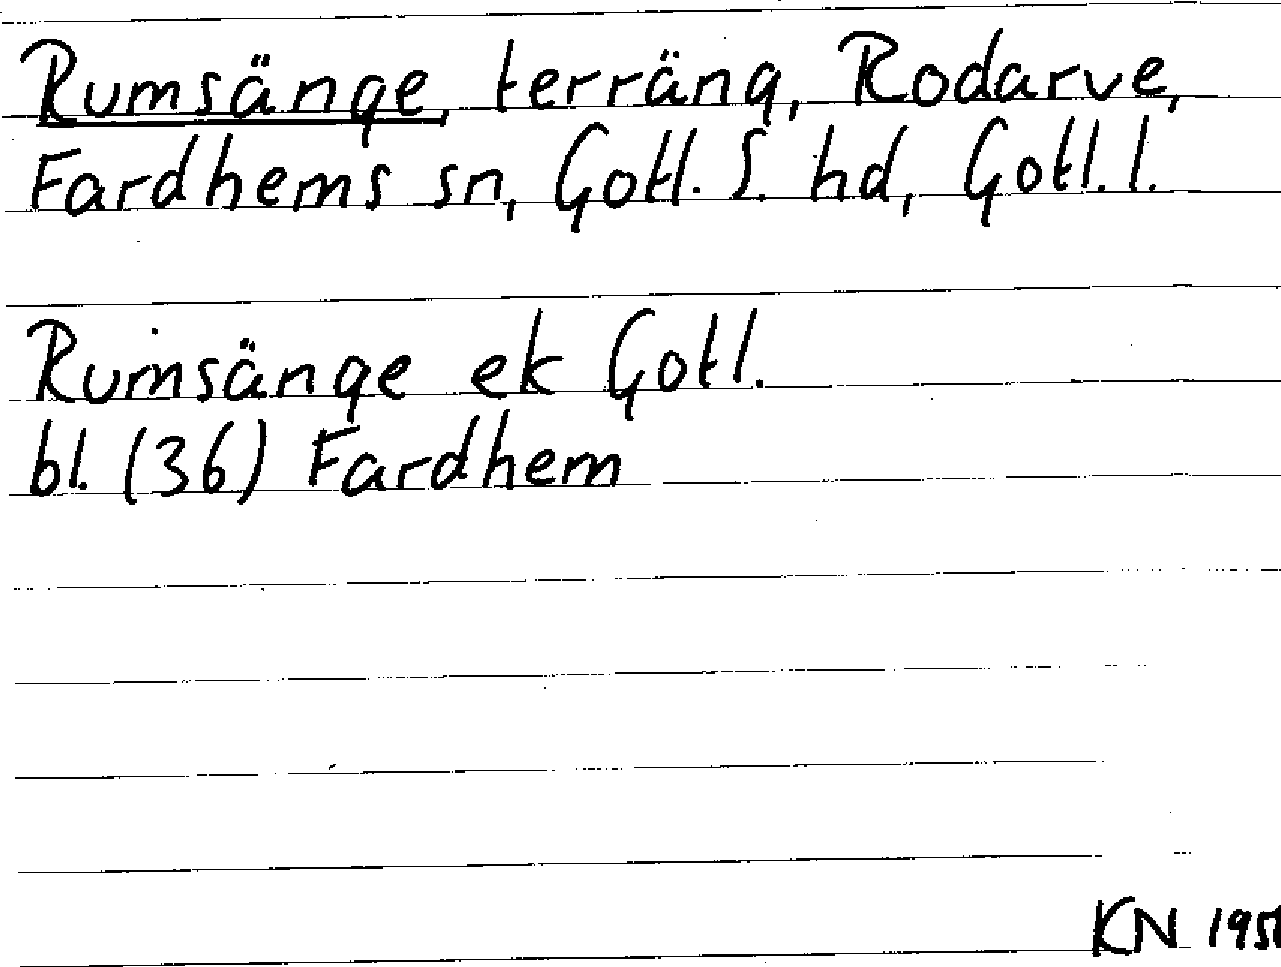 Rumsänge, terräng, Rodarve,
Fardhems sn, Gotl. S. hd, Gotl. l.
Rumsänge ek Gotl.
bl. (36) Fardhem
KN